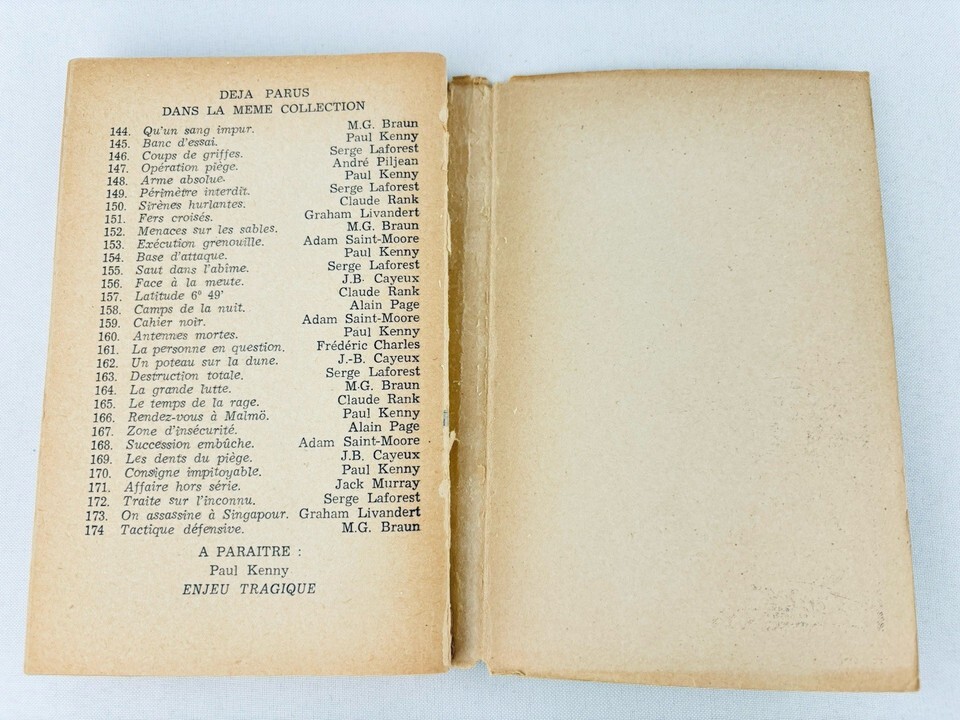 DEJA PARUS
DANS LA MEME COLLECTION
144. Qu'un sang impur. M.G. Braun
145. Banc d'essai. Paul Kenny
146. Coups de griffes. Serge Laforest
147. Opération piège. André Piljean
148. Arme absolue. Paul Kenny
149. Périmètre interdit. Serge Laforest
150. Sirènes hurlantes. Claude Rank
151. Fers croisés. Graham Livandert
152. Menaces sur les sables. M.G. Braun
153. Exécution grenouille. Adam Saint-Moore
154. Base d'attaque. Paul Kenny
155. Saut dans l'abîme. Serge Laforest
156. Face à la meute. J.B. Cayeux
157. Latitude 6° 49' Claude Rank
158. Camps de la nuit. Alain Page
159. Cahier noir. Adam Saint-Moore
160. Antennes mortes. Paul Kenny
161. La personne en question. Frédéric Charles
162. Un poteau sur la dune. J.-B. Cayeux
163. Destruction totale. Serge Laforest
164. La grande lutte. M.G. Braun
165. Le temps de la rage. Claude Rank
166. Rendez-vous à Malmö. Paul Kenny
167. Zone d'insécurité. Alain Page
168. Succession embûche. Adam Saint-Moore
169. Les dents du piège. J.B. Cayeux
170. Consigne impitoyable. Paul Kenny
171. Affaire hors série. Jack Murray
172. Traite sur l'inconnu. Serge Laforest
173. On assassine à Singapour. Graham Livandert
174 Tactique défensive. M.G. Braun
A PARAITRE :
Paul Kenny
ENJEU TRAGIQUE